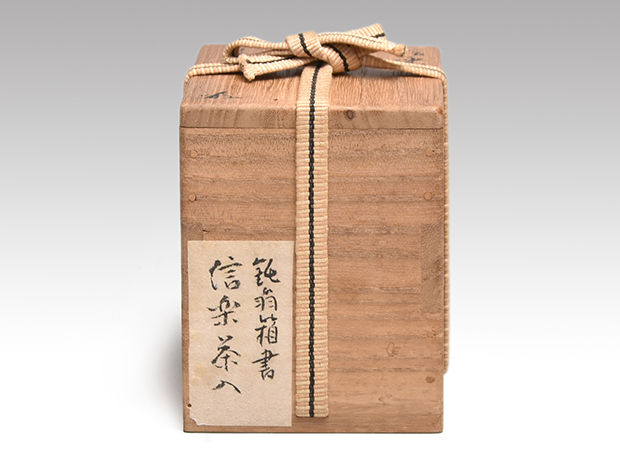 鈍翁箱書
信楽茶入